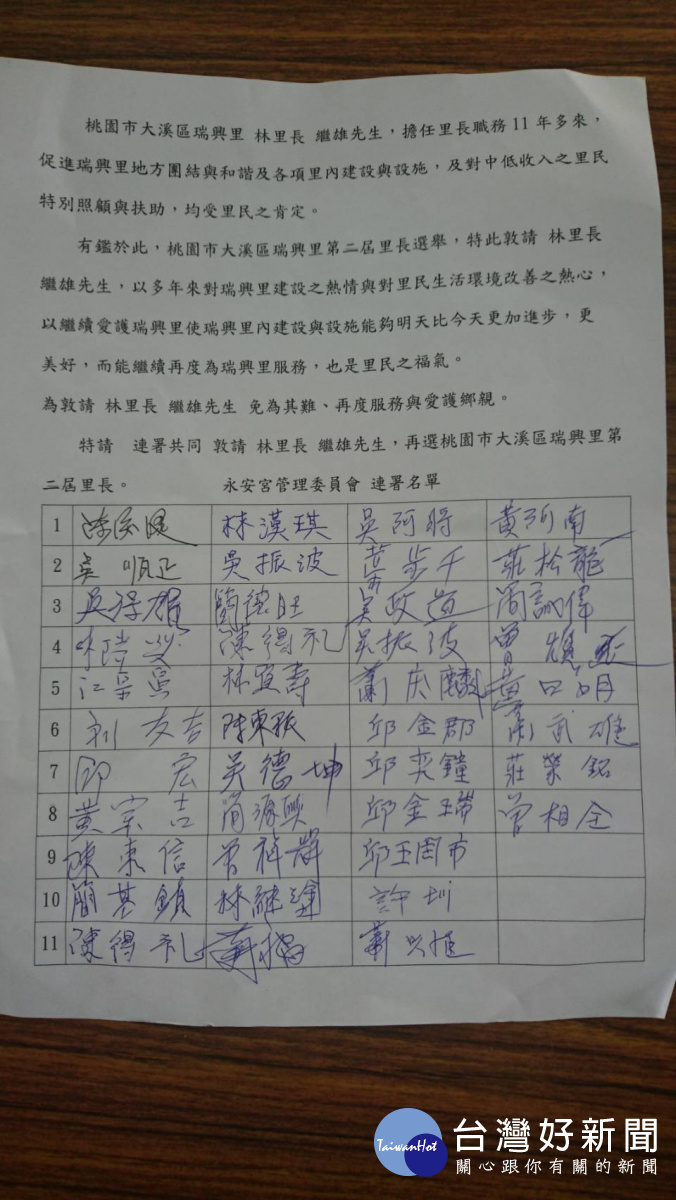 桃園市大溪區瑞興里 林里長 繼雄先生，擔任里長職務 11 年多來，
促進瑞興里地方團結與和諧及各項里內建設與設施，及對中低收入之里民
特別照顧與扶助，均受里民之肯定。
有鑑於此，桃園市大溪區瑞興里第二屆里長選舉，特此敦請 林里長
繼雄先生，以多年來對瑞興里建設之熱情與對里民生活環境改善之熱心，
以繼續愛護瑞興里使瑞興里內建設與設施能夠明天比今天更加進步，更
美好，而能繼續再度為瑞興里服務，也是里民之福氣。
為敦請 林里長 繼雄先生 免為其難、再度服務與愛護鄉親。
特請 連署共同 敦請 林里長 繼雄先生，再選桃園市大溪區瑞興里第
二屆里長。 永安宮管理委員會 連署名單
1 林漢琪 吳阿將 黃阿南
2 吳順正 吳振波 葉步千 莊松龍
3 簡德旺 吳政道
4 陳得礼 吳振波 曾
5 林宜壽 蕭庆麟
6 刘友吉 陳東振 邱金郡
7 邱宏 吳德坤 邱奕鐘 莊榮銘
8 黃宗吉 邱金瑞 曾相全
9 陳東信 曾祥輝 邱玉
10 簡基鎮 林継達 許圳
11 陳得礼
TaiwanHot
台灣好新聞
關心跟你有關的新聞